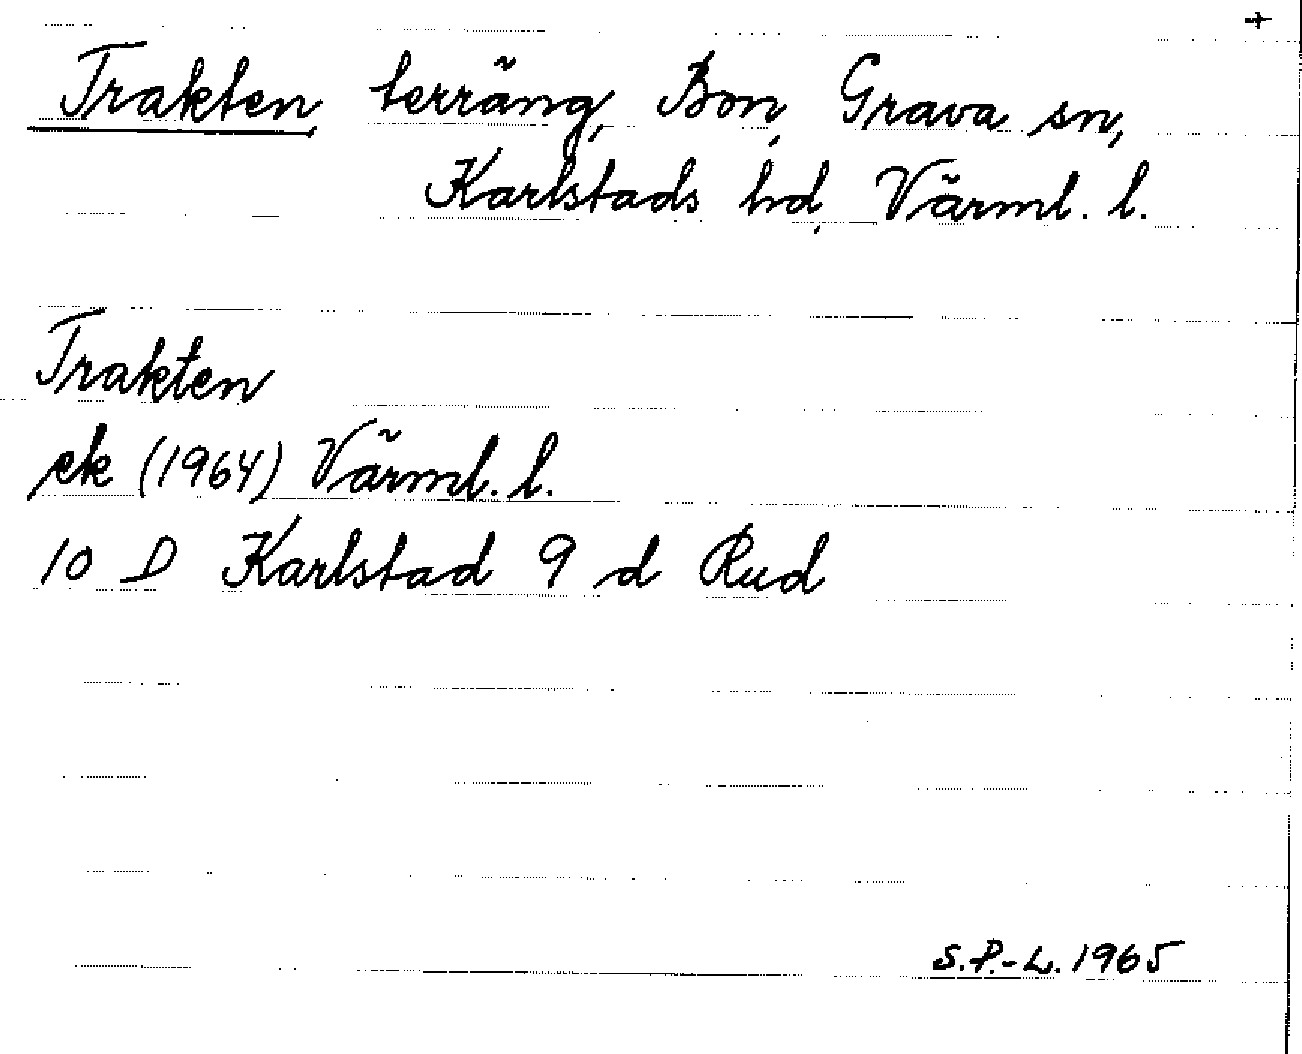 +
Trakten, terräng, Bon, Grava sn,
Karlstads hd, Värml. l.
Trakten
ek (1964) Värml. l.
10 D Karlstad 9 d Rud
S.P.-L. 1965